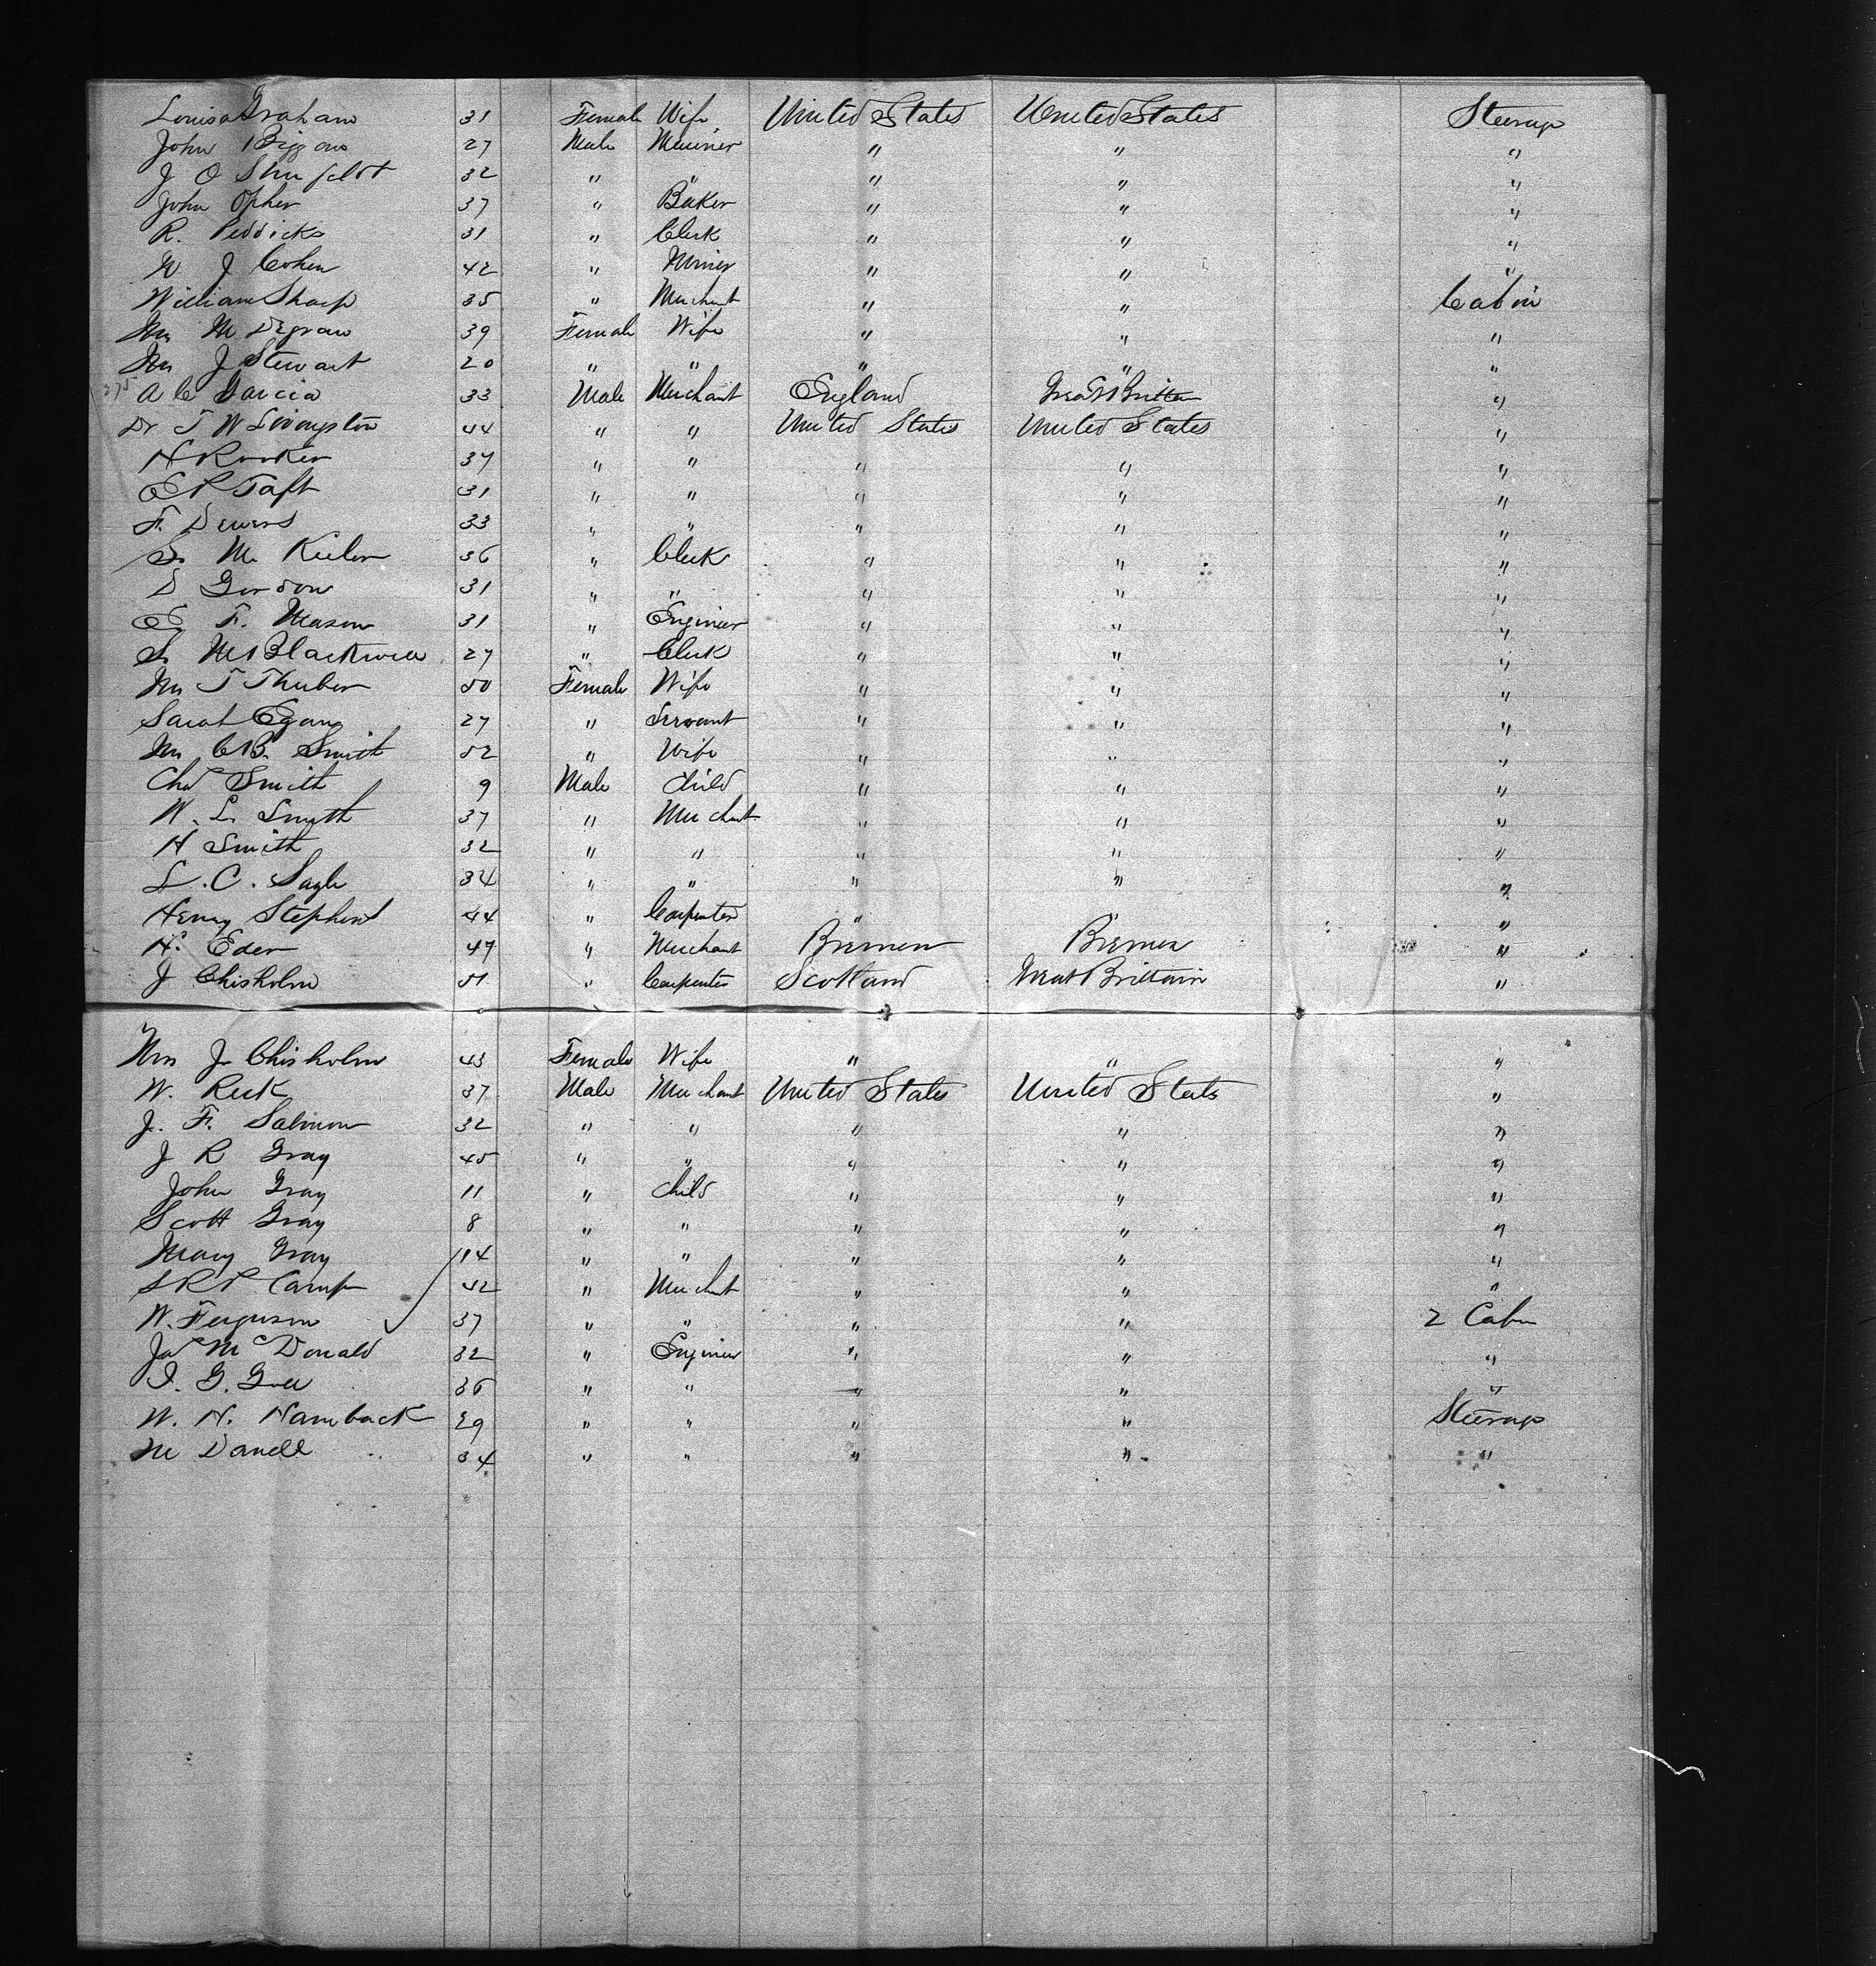 Louisa Graham 31 Female Wife United States United States Steerage
John Biggans 27 Male Mariner " " "
J O Shufeldt 32 " " " " "
John Opher 37 " Baker " " "
R. Peddicks 31 " Clerk " " "
W J Cohen 42 " Miner " " "
William Sharp 35 " Merchant " " Cabin
Mrs M Degraw 39 Female Wife " " "
Mrs J Stewart 20 " " " " "
275 A C Garcia 33 Male Merchant England Great Britten "
Dr T W Livingston 44 " " United States United States "
H Rooker 37 " " " " "
E P Taft 31 " " " " "
F. Dewers 33 " " " " "
S. M. Keeler 36 " Clerk " " "
D Gordon 31 " " " " "
E F. Mason 31 " Engineer " " "
S. M Blackwell 27 " Clerk " " "
Mrs T Thurber 50 Female Wife " " "
Sarah Egan 27 " Servant " " "
Mrs C B. Smith 52 " Wife " " "
Chas Smith 9 Male Child " " "
W. L. Smyth 37 " Merchant " " "
H Smith 32 " " " " "
L. C. Sayle 34 " " " " "
Henry Stephens 44 " Carpenter " " "
H. Eder 47 " Merchant Bremen Bremen "
J Chisholm 51 " Carpenter Scotland Great Brittain "
Mrs J Chisholm 43 Female Wife " " "
W. Reek 37 Male Merchant United States United States "
J. F. Salmon 32 " " " " "
J R Gray 45 " " " " "
John Gray 11 " Child " " "
Scott Gray 8 " " " " "
Mary Gray 14 " " " " "
S R P Camp 42 " Merchant " " "
W. Ferguson 37 " " " " 2 Cabin
Jas McDonald 32 " Engineer " " "
I. G. Goll 36 " " " " "
W. H. Hamback 29 " " " " Steerage
M Darell 34 " " " " "